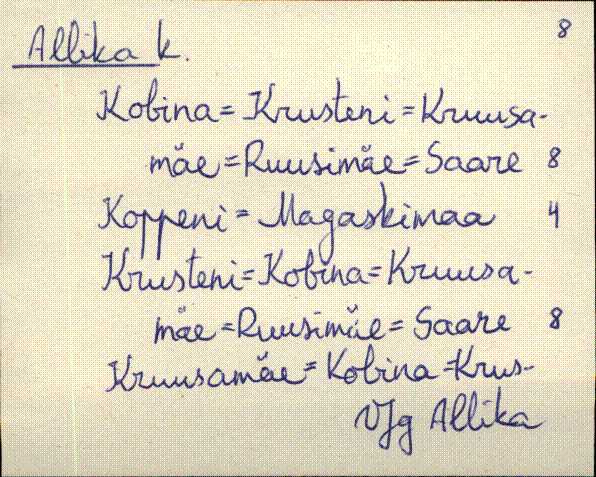 8
Allika k.
Kobina = Krusteni = Kruusa-
mäe = Ruusimäe = Saare 8
Koppeni = Magaskimaa 4
Krusteni = Kobina = Kruusa-
mäe = Ruusimäe = Saare 8
Kruusamäe = Kobina = Krus-
Vfg Allika